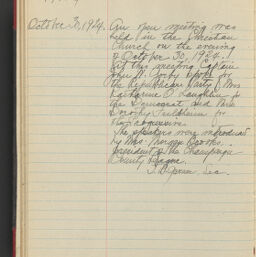 October 30, 1924. An open meeting was
held in the Christian
Church on the evening
of October 30, 1924.
At this meeting Captain
John H. Crosby spoke for
the Republican Party, Mrs
Katharine O'Laughlin for
the Democrat and Miss
Dorothy for
the
The speakers were introduced
by Mrs. Brooks
president of the Champaign
County League.
Sec.